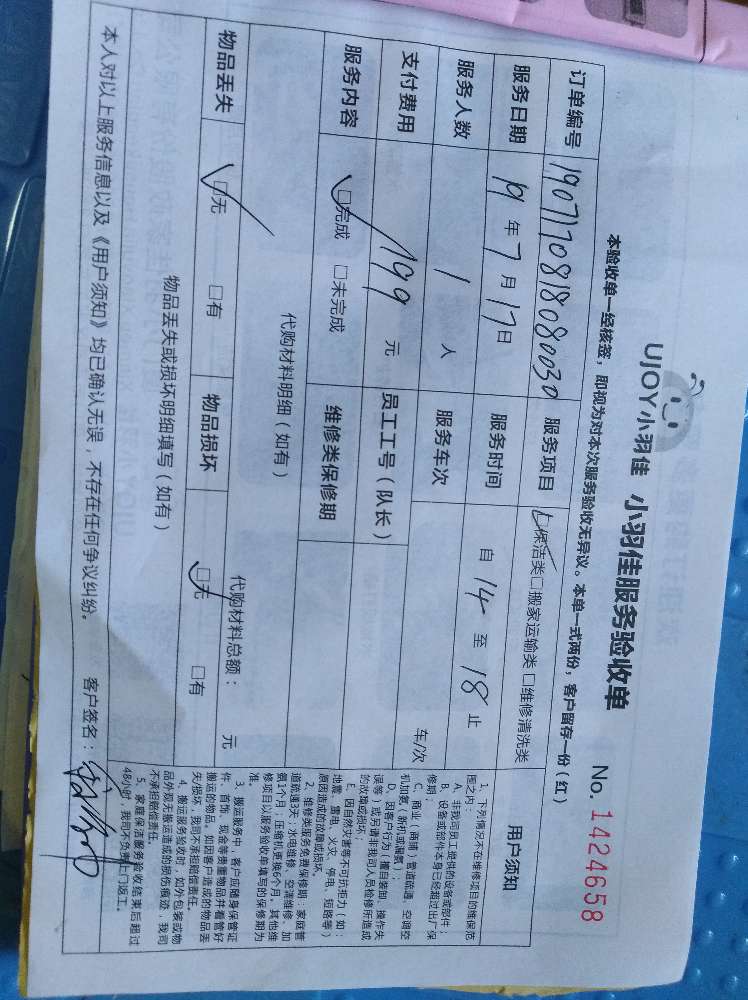 UJOY小羽佳 小羽佳服务验收单 No. 1424658
本验收单一经核签，即视为对本次服务验收无异议。本单一式两份，客户留存一份（红）
订单编号 1907170818080030 服务项目 ☑保洁类□搬家运输类 □维修清洗类
服务日期 19 年 7 月 17 日 服务时间 自 14 至 18 止
服务人数 1 人 服务车次 车/次
支付费用 199 元 员工工号（队长）
服务内容 ☑完成 □未完成 维修类保修期
代购材料明细（如有） 代购材料总额： 元
物品丢失 ☑无 □有 物品损坏 ☑无 □有
物品丢失或损坏明细填写（如有）
本人对以上服务信息以及《用户须知》均已确认无误，不存在任何争议纠纷。 客户签名：
用户须知
1、下列情况不在维修项目的维保范
围之内：
A、非我司员工提供的设备或部件；
B、设备或部件本身已经超过出厂保
修期；
C、商业（商铺）管道疏通、空调空
机加氨，新机或漏氨）；
D、因客户行为（擅自装卸、操作失
误等）或另请非我司人员检修所造成
的故障或损坏；
E、因自然灾害等不可抗拒力（如：
地震、雷电、火灾、停电、短路等）
原因造成的故障或损坏。
2、维修类服务免费保修期：家庭管
道疏通3天；水电维修、空调维修、加
氨1个月；压缩机更换6个月。其他维
修项目以服务验收单填写的保修期为
准。
3、搬运服务中，客户应随身保管证
件、首饰、现金等贵重物品并看管好
搬运的物品，如因客户造成的物品丢
失/损坏，我司不承担赔偿责任。
4、搬运服务验收时，如外包装或物
品外观无搬运造成的损伤痕迹，我司
不承担赔偿责任。
5、家庭保洁服务验收结束后超过
48小时，我司不负责上门返工。